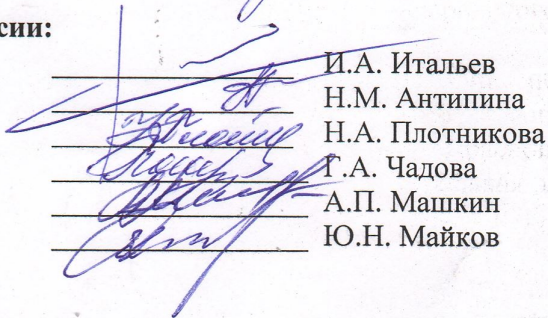 сии:
И.А. Итальев
Н.М. Антипина
Н.А. Плотникова
Г.А. Чадова
А.П. Машкин
Ю.Н. Майков